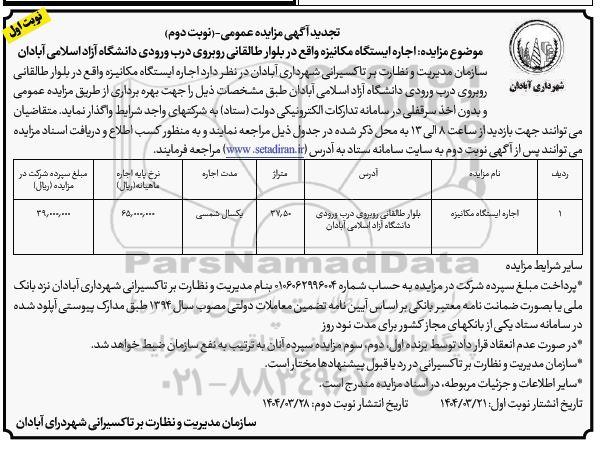 نوبت اول
تجدید آگهی مزایده عمومی-(نوبت دوم)
موضوع مزایده: اجاره ایستگاه مکانیزه واقع در بلوار طالقانی روبروی درب ورودی دانشگاه آزاد اسلامی آبادان
شهرداری آبادان
سازمان مدیریت و نظارت بر تاکسیرانی شهرداری آبادان در نظر دارد اجاره ایستگاه مکانیزه واقع در بلوار طالقانی
روبروی درب ورودی دانشگاه آزاد اسلامی آبادان طبق مشخصات ذیل را جهت بهره برداری از طریق مزایده عمومی
و بدون اخذ سرقفلی در سامانه تدارکات الکترونیکی دولت (ستاد) به شرکتهای واجد شرایط واگذار نماید. متقاضیان
می توانند جهت بازدید از ساعت ۸ الی ۱۳ به محل ذکر شده در جدول ذیل مراجعه نمایند و به منظور کسب اطلاع و دریافت اسناد مزایده
می توانند پس از آگهی نوبت دوم به سایت سامانه ستاد به آدرس (www.setadiran.ir) مراجعه فرمایند.
ردیف	نام مزایده	آدرس	متراژ	مدت اجاره	نرخ پایه اجاره ماهیانه(ریال)	مبلغ سپرده شرکت در مزایده (ریال)
۱	اجاره ایستگاه مکانیزه	بلوار طالقانی روبروی درب ورودی دانشگاه آزاد اسلامی آبادان	۳۷,۵۰	یکسال شمسی	۶۵,۰۰۰,۰۰۰	۳۹,۰۰۰,۰۰۰
سایر شرایط مزایده
*پرداخت مبلغ سپرده شرکت در مزایده به حساب شماره ۰۱۰۶۰۶۲۹۹۶۰۰۴ بنام مدیریت و نظارت بر تاکسیرانی شهرداری آبادان نزد بانک
ملی یا بصورت ضمانت نامه معتبر بانکی بر اساس آیین نامه تضمین معاملات دولتی مصوب سال ۱۳۹۴ طبق مدارک پیوستی آپلود شده
در سامانه ستاد یکی از بانکهای مجاز کشور برای مدت نود روز
*در صورت عدم انعقاد قرار داد توسط برنده اول، دوم، سوم مزایده سپرده آنان به ترتیب به نفع سازمان ضبط خواهد شد.
*سازمان مدیریت و نظارت بر تاکسیرانی در رد یا قبول پیشنهادها مختار است.
*سایر اطلاعات و جزئیات مربوطه، در اسناد مزایده مندرج است.
تاریخ انشتار نوبت اول: ۱۴۰۴/۰۳/۲۱ تاریخ انتشار نوبت دوم: ۱۴۰۴/۰۳/۲۸
سازمان مدیریت و نظارت بر تاکسیرانی شهردرای آبادان
ParsNamadData
۰۲۱-۸۸۳۴۹۶۷۰-۵